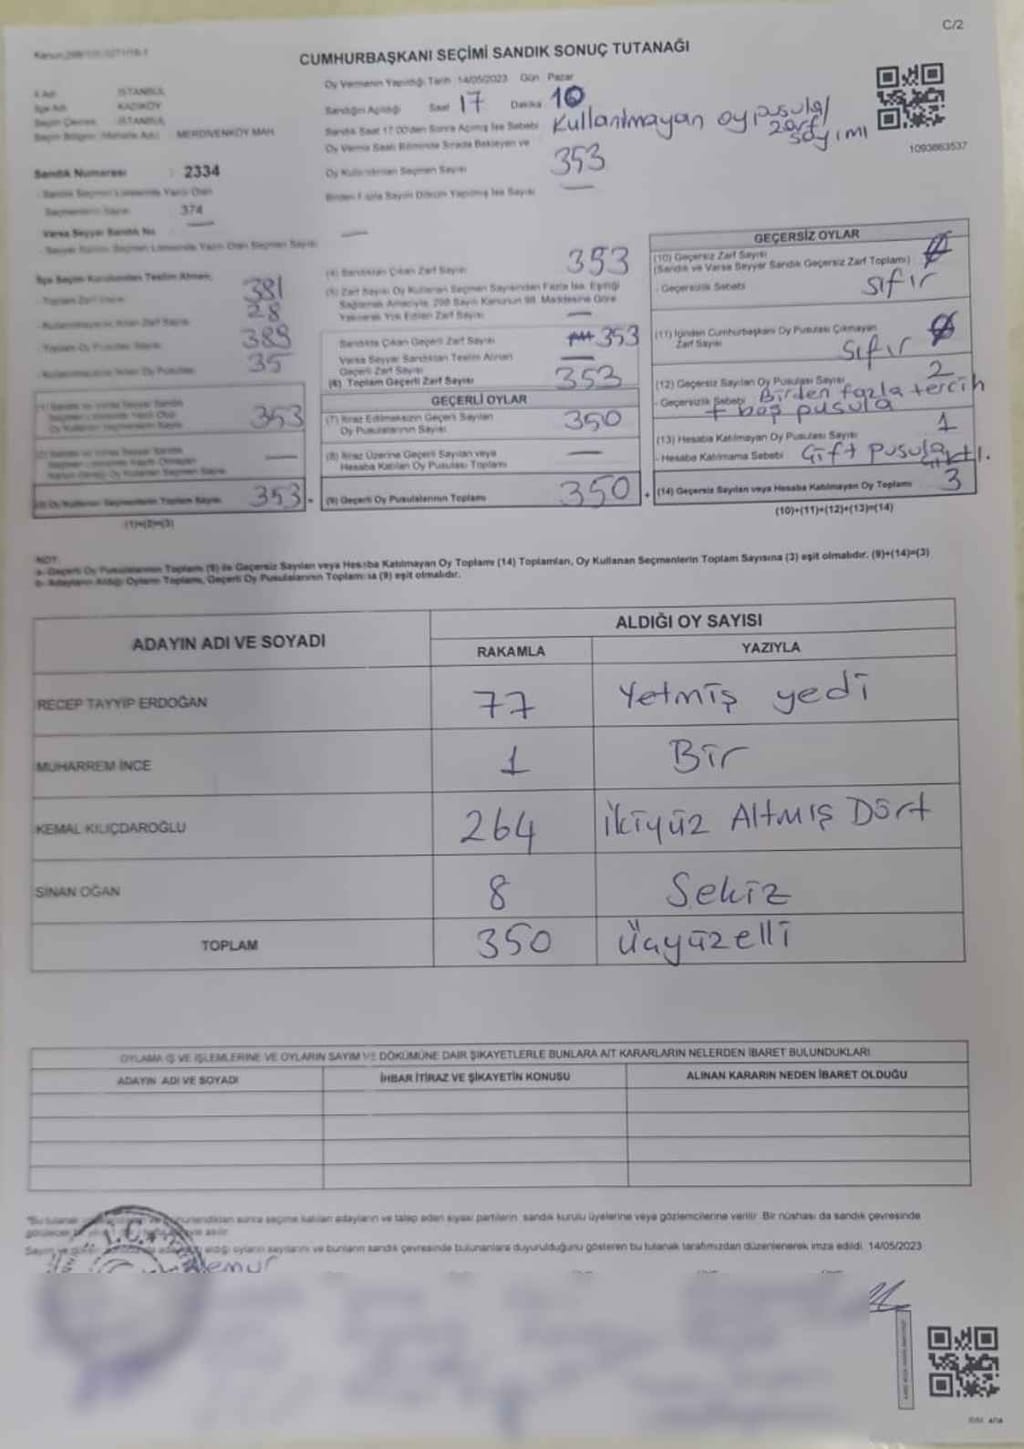 C/2
CUMHURBAŞKANI SEÇİMİ SANDIK SONUÇ TUTANAĞI
Oy Vermenin Yapıldığı Tarih 14/05/2023 Gün Pazar
İli Adı İSTANBUL
İlçe Adı KADIKÖY
Seçim Çevresi İSTANBUL
MERDİVENKÖY MAH.
Sandığın Açıldığı Saat 17 Dakika 10
Sandık Saat 17:00'den Sonra Açılmış İse Sebebi Kullanılmayan oy pusula/
zarf
sayımı
Oy Verme Saati Bitiminde Sırada Bekleyen ve
Oy Kullandırılan Seçmen Sayısı 353
Birden Fazla Sayım Döküm Yapılmış İse Sayısı —
1093863537
Sandık Numarası : 2334
- Sandık Seçmen Listesinde Yazılı Olan
Seçmenlerin Sayısı 374
Varsa Seyyar Sandık No —
- Seyyar Sandık Seçmen Listesinde Yazılı Olan Seçmen Sayısı —
İlçe Seçim Kurulundan Teslim Alınan;
- Toplam Zarf Sayısı 381
- Kullanılmayan Artan Zarf Sayısı 28
- Toplam Oy Pusulası Sayısı 388
- Kullanılmayan Artan Oy Pusulası 35
353
—
(3) Oy Kullanan Seçmenlerin Toplam Sayısı 353
(1)+(2)=(3)
(4) Sandıktan Çıkan Zarf Sayısı 353
(5) Zarf Sayısı Oy Kullanan Seçmen Sayısından Fazla İse, Eşitliği
Sağlamak Amacıyla, 298 Sayılı Kanunun 98. Maddesine Göre
Yakılarak Yok Edilen Zarf Sayısı —
Sandıkta Çıkan Geçerli Zarf Sayısı 353
Varsa Seyyar Sandıktan Teslim Alınan
Geçerli Zarf Sayısı —
(6) Toplam Geçerli Zarf Sayısı 353
GEÇERLİ OYLAR
(7) İtiraz Edilmeksizin Geçerli Sayılan
Oy Pusulalarının Sayısı 350
(8) İtiraz Üzerine Geçerli Sayılan veya
Hesaba Katılan Oy Pusulası Toplamı —
(9) Geçerli Oy Pusulalarının Toplamı 350
GEÇERSİZ OYLAR
(10) Geçersiz Zarf Sayısı
(Sandık ve Varsa Seyyar Sandık Geçersiz Zarf Toplamı) 0
- Geçersizlik Sebebi sıfır
(11) İçinden Cumhurbaşkanı Oy Pusulası Çıkmayan
Zarf Sayısı 0 sıfır
(12) Geçersiz Sayılan Oy Pusulası Sayısı 2
- Geçersizlik Sebebi Birden fazla tercih
+ boş pusula
(13) Hesaba Katılmayan Oy Pusulası Sayısı 1
- Hesaba Katılmama Sebebi Çift pusula
(14) Geçersiz Sayılan veya Hesaba Katılmayan Oy Toplamı 3
(10)+(11)+(12)+(13)=(14)
NOT:
a- Geçerli Oy Pusulalarının Toplamı (9) ile Geçersiz Sayılan veya Hesaba Katılmayan Oy Toplamı (14) Toplamları, Oy Kullanan Seçmenlerin Toplam Sayısına (3) eşit olmalıdır. (9)+(14)=(3)
b- Adayların Aldığı Oyların Toplamı, Geçerli Oy Pusulalarının Toplamına (9) eşit olmalıdır.
ADAYIN ADI VE SOYADI
ALDIĞI OY SAYISI
RAKAMLA YAZIYLA
RECEP TAYYİP ERDOĞAN 77 Yetmiş yedi
MUHARREM İNCE 1 Bir
KEMAL KILIÇDAROĞLU 264 İkiyüz Altmış Dört
SİNAN OĞAN 8 Sekiz
TOPLAM 350 Üçyüzelli
OYLAMA İŞ VE İŞLEMLERİNE VE OYLARIN SAYIM VE DÖKÜMÜNE DAİR ŞİKAYETLERLE BUNLARA AİT KARARLARIN NELERDEN İBARET BULUNDUKLARI
ADAYIN ADI VE SOYADI İHBAR İTİRAZ VE ŞİKAYETİN KONUSU ALINAN KARARIN NEDEN İBARET OLDUĞU
sonra seçime katılan adayların ve talep eden siyasi partilerin sandık kurulu üyelerine veya gözlemcilerine verilir. Bir nüshası da sandık çevresinde
aldığı oyların sayılarını ve bunların sandık çevresinde bulunanlara duyurulduğunu gösteren bu tutanak tarafımızdan düzenlenerek imza edildi. 14/05/2023
T.C.
Memur